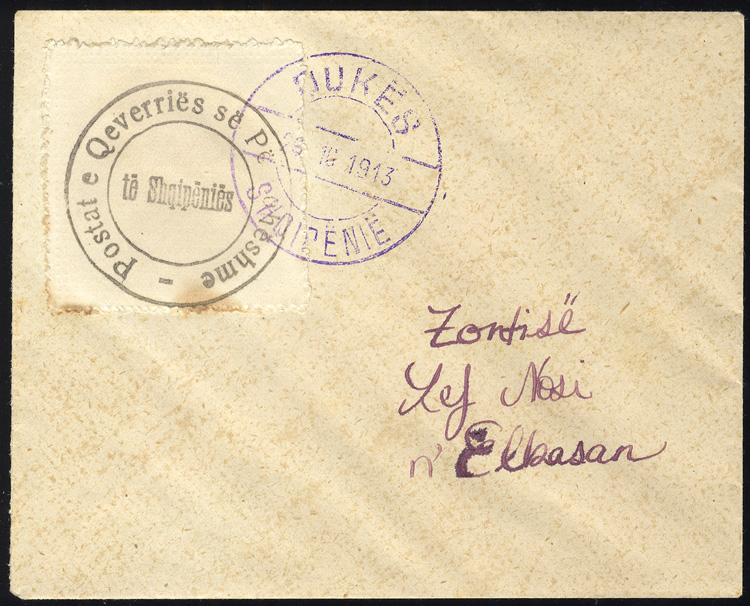 Postat e Qeverriës së Përkohëshme -
të Shqipëniës
DUKËS
1913
SHQIPËNIË
Zontisë
Lef Nosi
n' Elbasan